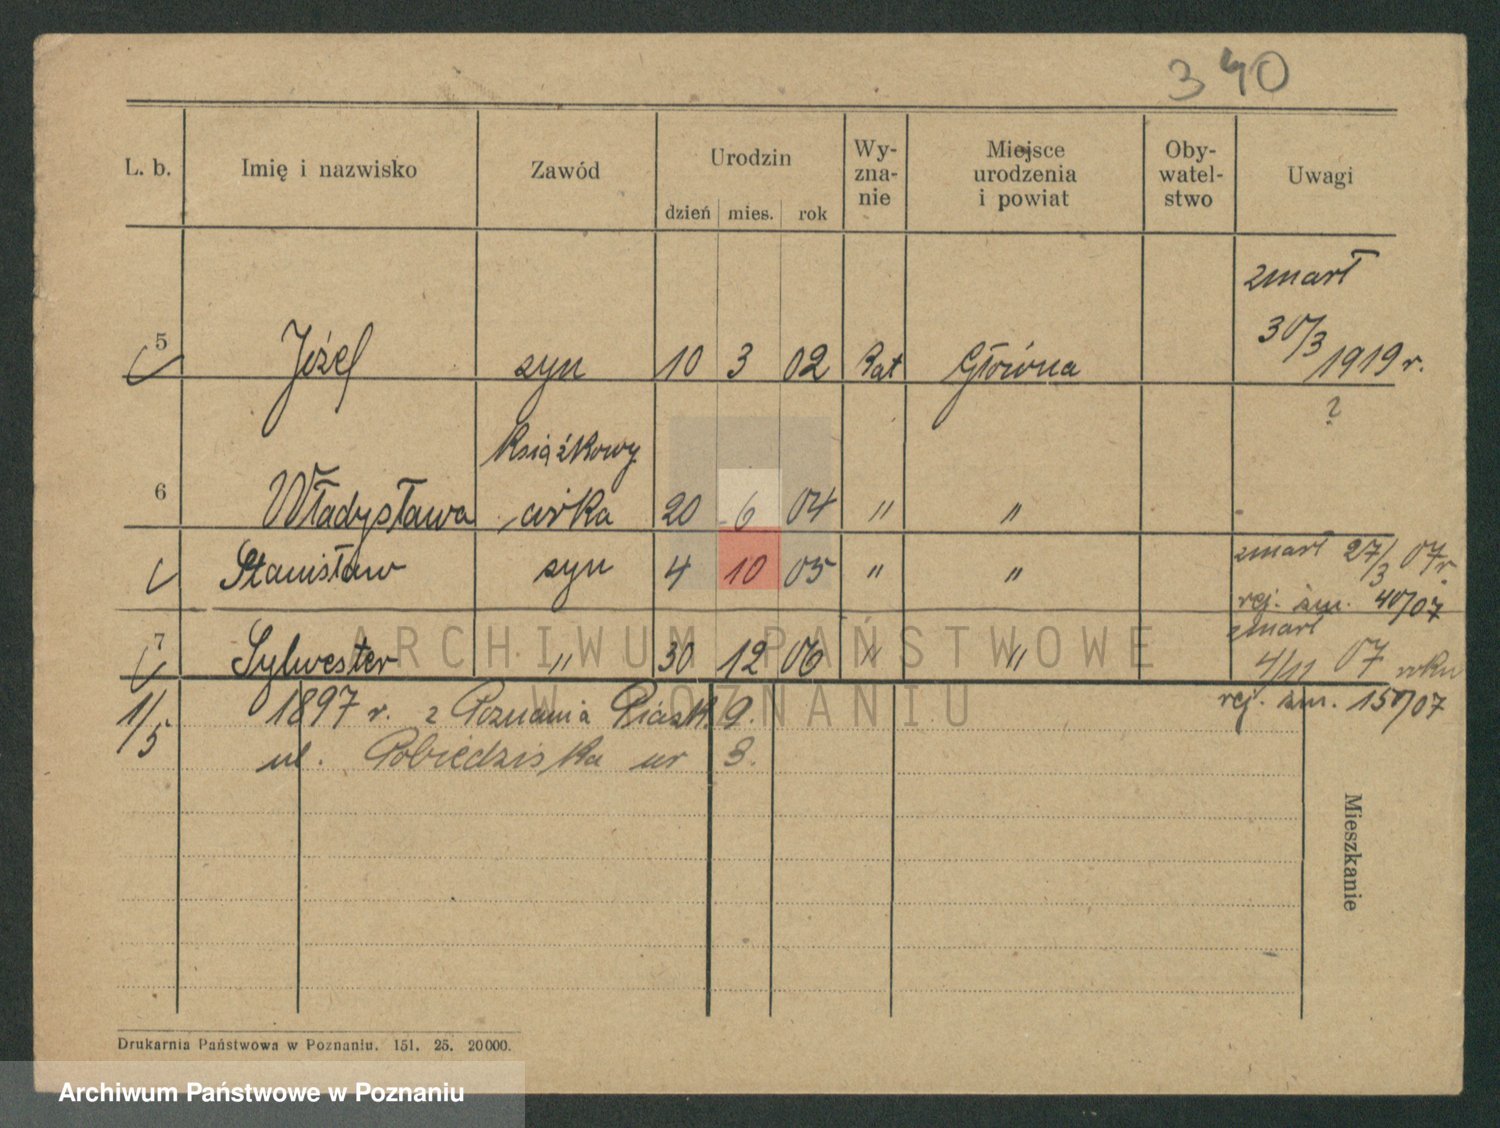 340
L. b. Imię i nazwisko Zawód Urodzin dzień mies. rok Wy-zna-nie Miejsce urodzenia i powiat Oby-watel-stwo Uwagi
zmarł
30/3
5 Józef syn 10 3 02 Kat Główna 1919 r.
?
książkowy
6 Władysława córka 20 6 04 " "
Stanisław syn 4 10 05 " " zmarł 27/3 07 r.
rej. zm. 40/07
7 Sylwester " 30 12 06 " " zmarł
4/11 07 roku
ARCHIWUM PAŃSTWOWE
W POZNANIU
1/5 1897 r. z Poznania Piask. 9. rej. zm. 150/07
ul. Pobiedziska nr 3.
Mieszkanie
Drukarnia Państwowa w Poznaniu. 151. 25. 20000.
Archiwum Państwowe w Poznaniu